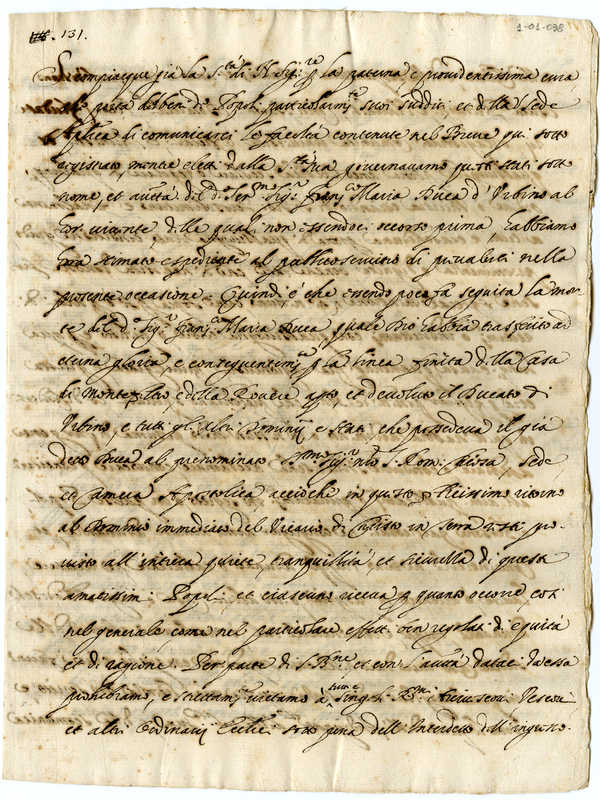 131.
1-01-038
Si compiacque già la S.tà di N. Sig.re p la paterna e providentissima cura
che porta al ben de Popoli particolarm.te suoi sudditi et della Sede
Ap.lica di comunicarci le facoltà contenute nel Breve qui sotto
registrato, mentre eletti dalla S.tà Sua governavamo questi stati sotto
nome, et autt.à del d.o Ser.mo Sig.r Franc.o Maria Duca d'Urbino al
hor vivente delle quali non essendoci occorso prima, habbiamo
hora stimato espediente al publico servitio di prevalerci nella
presente occasione. Quindi è che essendo poco fa seguita la mor-
te del d.o Sig.r Franc.o Maria Duca, quale Dio habbia trasferito ad
eterna gloria, e conseguentem.te p la linea finita della Casa
di Montefeltro, e della Rovere apto, et devoluto il Ducato di
Urbino, e tutti gl'altri Dominij e Stati che possedeva il già
detto Duca al prenominato S.mo Sig.r n̄ro S. Rom. Chiesa, Sede,
et Camera Apostolica acciochè in questo felicissimo ritorno
al Dominio immediato del Vicario di Christo in terra resti pro-
visto all'intiera quiete, tranquillità, et sicurezza di questi
amatissimi Popoli et ciascuno riceva p quanto occorre, così
nel generale come nel particolare effetti ben regolati d'equità
et di ragione. Per parte di S. B.ne et con l'autt.à dataci da essa
prohibiamo, e strettam.te vietamo à tutti e sing.li R.mi Arcivescovi Vescovi
et altri Ordinarij Eccl.ci sotto pena dell'Interdetto dell'ingresso